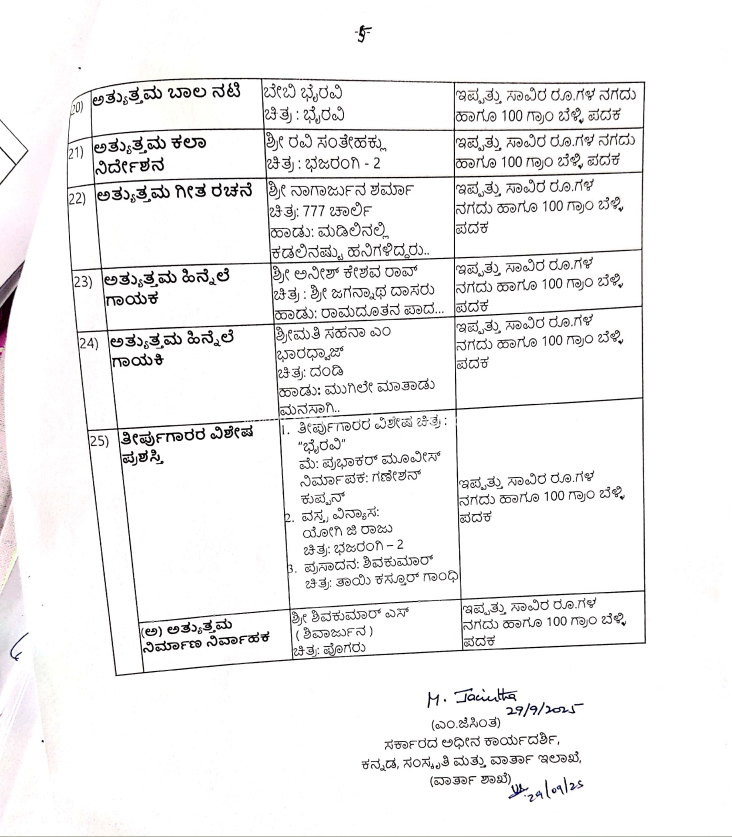 -5-
20) ಅತ್ಯುತ್ತಮ ಬಾಲ ನಟಿ
ಬೇಬಿ ಭೈರವಿ
ಚಿತ್ರ : ಭೈರವಿ
ಇಪ್ಪತ್ತು ಸಾವಿರ ರೂ.ಗಳ ನಗದು
ಹಾಗೂ 100 ಗ್ರಾಂ ಬೆಳ್ಳಿ ಪದಕ
21) ಅತ್ಯುತ್ತಮ ಕಲಾ
ನಿರ್ದೇಶನ
ಶ್ರೀ ರವಿ ಸಂತೇಹಕ್ಲು
ಚಿತ್ರ : ಭಜರಂಗಿ - 2
ಇಪ್ಪತ್ತು ಸಾವಿರ ರೂ.ಗಳ ನಗದು
ಹಾಗೂ 100 ಗ್ರಾಂ ಬೆಳ್ಳಿ ಪದಕ
22) ಅತ್ಯುತ್ತಮ ಗೀತ ರಚನೆ
ಶ್ರೀ ನಾಗಾರ್ಜುನ ಶರ್ಮಾ
ಚಿತ್ರ: 777 ಚಾರ್ಲಿ
ಹಾಡು: ಮಡಿಲಿನಲ್ಲಿ
ಕಡಲಿನಷ್ಟು ಹನಿಗಳಿದ್ದರು..
ಇಪ್ಪತ್ತು ಸಾವಿರ ರೂ.ಗಳ
ನಗದು ಹಾಗೂ 100 ಗ್ರಾಂ ಬೆಳ್ಳಿ
ಪದಕ
23) ಅತ್ಯುತ್ತಮ ಹಿನ್ನೆಲೆ
ಗಾಯಕ
ಶ್ರೀ ಅನೀಶ್ ಕೇಶವ ರಾವ್
ಚಿತ್ರ : ಶ್ರೀ ಜಗನ್ನಾಥ ದಾಸರು
ಹಾಡು: ರಾಮದೂತನ ಪಾದ...
ಇಪ್ಪತ್ತು ಸಾವಿರ ರೂ.ಗಳ
ನಗದು ಹಾಗೂ 100 ಗ್ರಾಂ ಬೆಳ್ಳಿ
ಪದಕ
24) ಅತ್ಯುತ್ತಮ ಹಿನ್ನೆಲೆ
ಗಾಯಕಿ
ಶ್ರೀಮತಿ ಸಹನಾ ಎಂ
ಭಾರಧ್ವಾಜ್
ಚಿತ್ರ: ದಂಡಿ
ಹಾಡು: ಮುಗಿಲೇ ಮಾತಾಡು
ಮನಸಾಗಿ..
ಇಪ್ಪತ್ತು ಸಾವಿರ ರೂ.ಗಳ
ನಗದು ಹಾಗೂ 100 ಗ್ರಾಂ ಬೆಳ್ಳಿ
ಪದಕ
25) ತೀರ್ಪುಗಾರರ ವಿಶೇಷ
ಪ್ರಶಸ್ತಿ
1. ತೀರ್ಪುಗಾರರ ವಿಶೇಷ ಚಿತ್ರ :
“ಭೈರವಿ”
ಮೆ: ಪ್ರಭಾಕರ್ ಮೂವೀಸ್
ನಿರ್ಮಾಪಕ: ಗಣೇಶನ್
ಕುಪ್ಪನ್
2. ವಸ್ತ್ರ ವಿನ್ಯಾಸ:
ಯೋಗಿ ಜಿ ರಾಜು
ಚಿತ್ರ: ಭಜರಂಗಿ – 2
3. ಪ್ರಸಾದನ: ಶಿವಕುಮಾರ್
ಚಿತ್ರ: ತಾಯಿ ಕಸ್ತೂರ್ ಗಾಂಧಿ
ಇಪ್ಪತ್ತು ಸಾವಿರ ರೂ.ಗಳ
ನಗದು ಹಾಗೂ 100 ಗ್ರಾಂ ಬೆಳ್ಳಿ
ಪದಕ
(ಅ) ಅತ್ಯುತ್ತಮ
ನಿರ್ಮಾಣ ನಿರ್ವಾಹಕ
ಶ್ರೀ ಶಿವಕುಮಾರ್ ಎಸ್
(ಶಿವಾರ್ಜುನ)
ಚಿತ್ರ: ಪೊಗರು
ಇಪ್ಪತ್ತು ಸಾವಿರ ರೂ.ಗಳ
ನಗದು ಹಾಗೂ 100 ಗ್ರಾಂ ಬೆಳ್ಳಿ
ಪದಕ
M. Jacintha
29/9/2025
(ಎಂ.ಜೆಸಿಂತ)
ಸರ್ಕಾರದ ಅಧೀನ ಕಾರ್ಯದರ್ಶಿ,
ಕನ್ನಡ, ಸಂಸ್ಕೃತಿ ಮತ್ತು ವಾರ್ತಾ ಇಲಾಖೆ,
(ವಾರ್ತಾ ಶಾಖೆ)
29/09/25